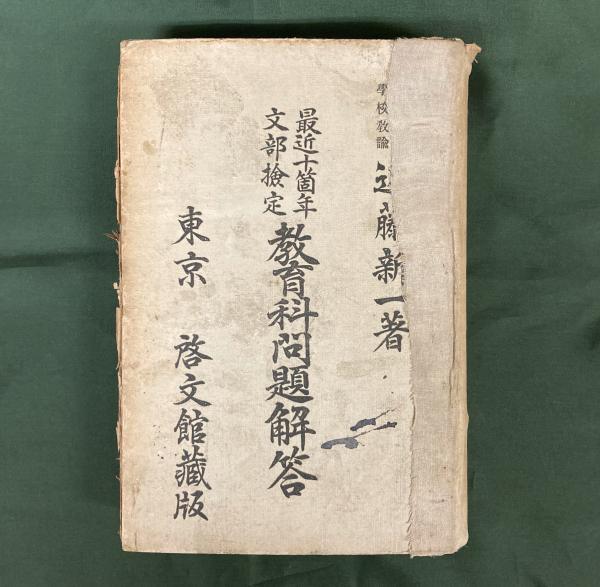 學校教諭
藤新一著
最近十箇年
文部撿定
教育科問題解答
東京 啓文館藏版